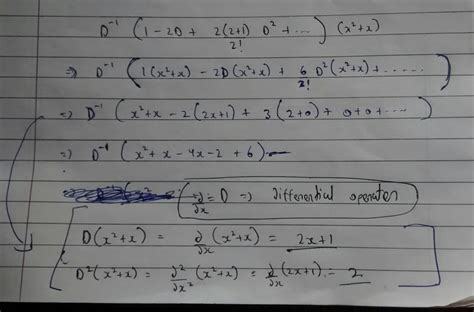 D⁻¹ (1 - 2D + 2(2+1)/2! D² + ...) (x²+x)
⇒ D⁻¹ (1(x²+x) - 2D(x²+x) + 6/2! D²(x²+x) + ......)
⇒ D⁻¹ (x²+x - 2(2x+1) + 3(2+0) + 0+0+....)
⇒ D⁻¹ (x²+x - 4x - 2 + 6)
∂/∂x = D → differential operator
D(x²+x) = ∂/∂x (x²+x) = 2x+1
D²(x²+x) = ∂²/∂x² (x²+x) = ∂/∂x (2x+1) = 2